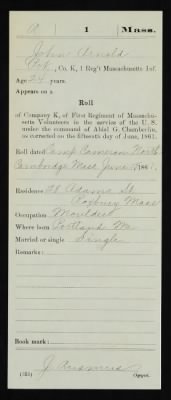 A 1 Mass.
John Arnold
Pvt, Co. K, 1 Reg't Massachusetts Inf.
Age 24 years.
Appears on a
Roll
of Company K, of First Regiment of Massachu-
setts Volunteers in the service of the U. S.
under the command of Abial G. Chamberlin,
as corrected on the fifteenth day of June, 1861.
Roll dated Camp Cameron North
Cambridge Mass June 15, 1861.
Residence 28 Adams St.
Roxbury Mass
Occupation Moulder
Where born Portland Me
Married or single Single
Remarks:
Book mark:
(383)
Copyist.